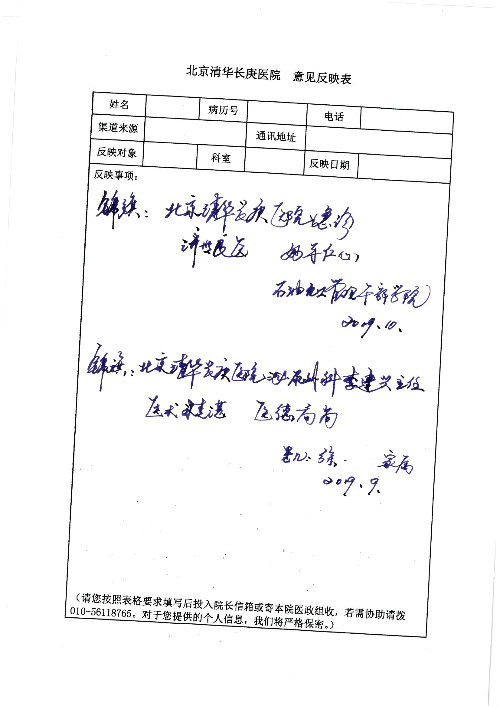 北京清华长庚医院 意见反映表
姓名 病历号 电话
渠道来源 通讯地址
反映对象 科室 反映日期
反映事项：
锦旗：北京清华长庚医院急诊
济世良医 妙手仁心
石油 管理干部学院
2019.10.
锦旗：北京清华长庚医院泌尿外科李建兴主任
医术精湛 医德高尚
患儿 徐 家属
2019.9.
（请您按照表格要求填写后投入院长信箱或寄本院医政组收，若需协助请拨
010-56118765，对于您提供的个人信息，我们将严格保密。）